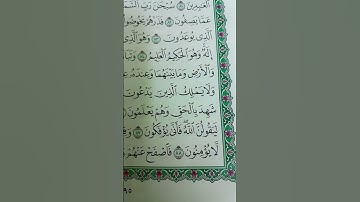 ٱلْعَٰبِدِينَ ۝٨١ سُبْحَٰنَ رَبِّ ٱلسَّمَ
عَمَّا يَصِفُونَ ۝٨٢ فَذَرْهُمْ يَخُوضُوا۟
ٱلَّذِى يُوعَدُونَ ۝٨٣ وَهُوَ ٱلَّذِى
إِلَٰهٌ وَهُوَ ٱلْحَكِيمُ ٱلْعَلِيمُ ۝٨٤ وَتَبَا
وَٱلْأَرْضِ وَمَا بَيْنَهُمَا وَعِندَهُۥ عِ
وَلَا يَمْلِكُ ٱلَّذِينَ يَدْعُونَ
شَهِدَ بِٱلْحَقِّ وَهُمْ يَعْلَمُونَ
لَيَقُولُنَّ ٱللَّهُ فَأَنَّىٰ يُؤْفَكُونَ ۝٨٧ وَقِ
لَّا يُؤْمِنُونَ ۝٨٨ فَٱصْفَحْ عَنْهُمْ وَ